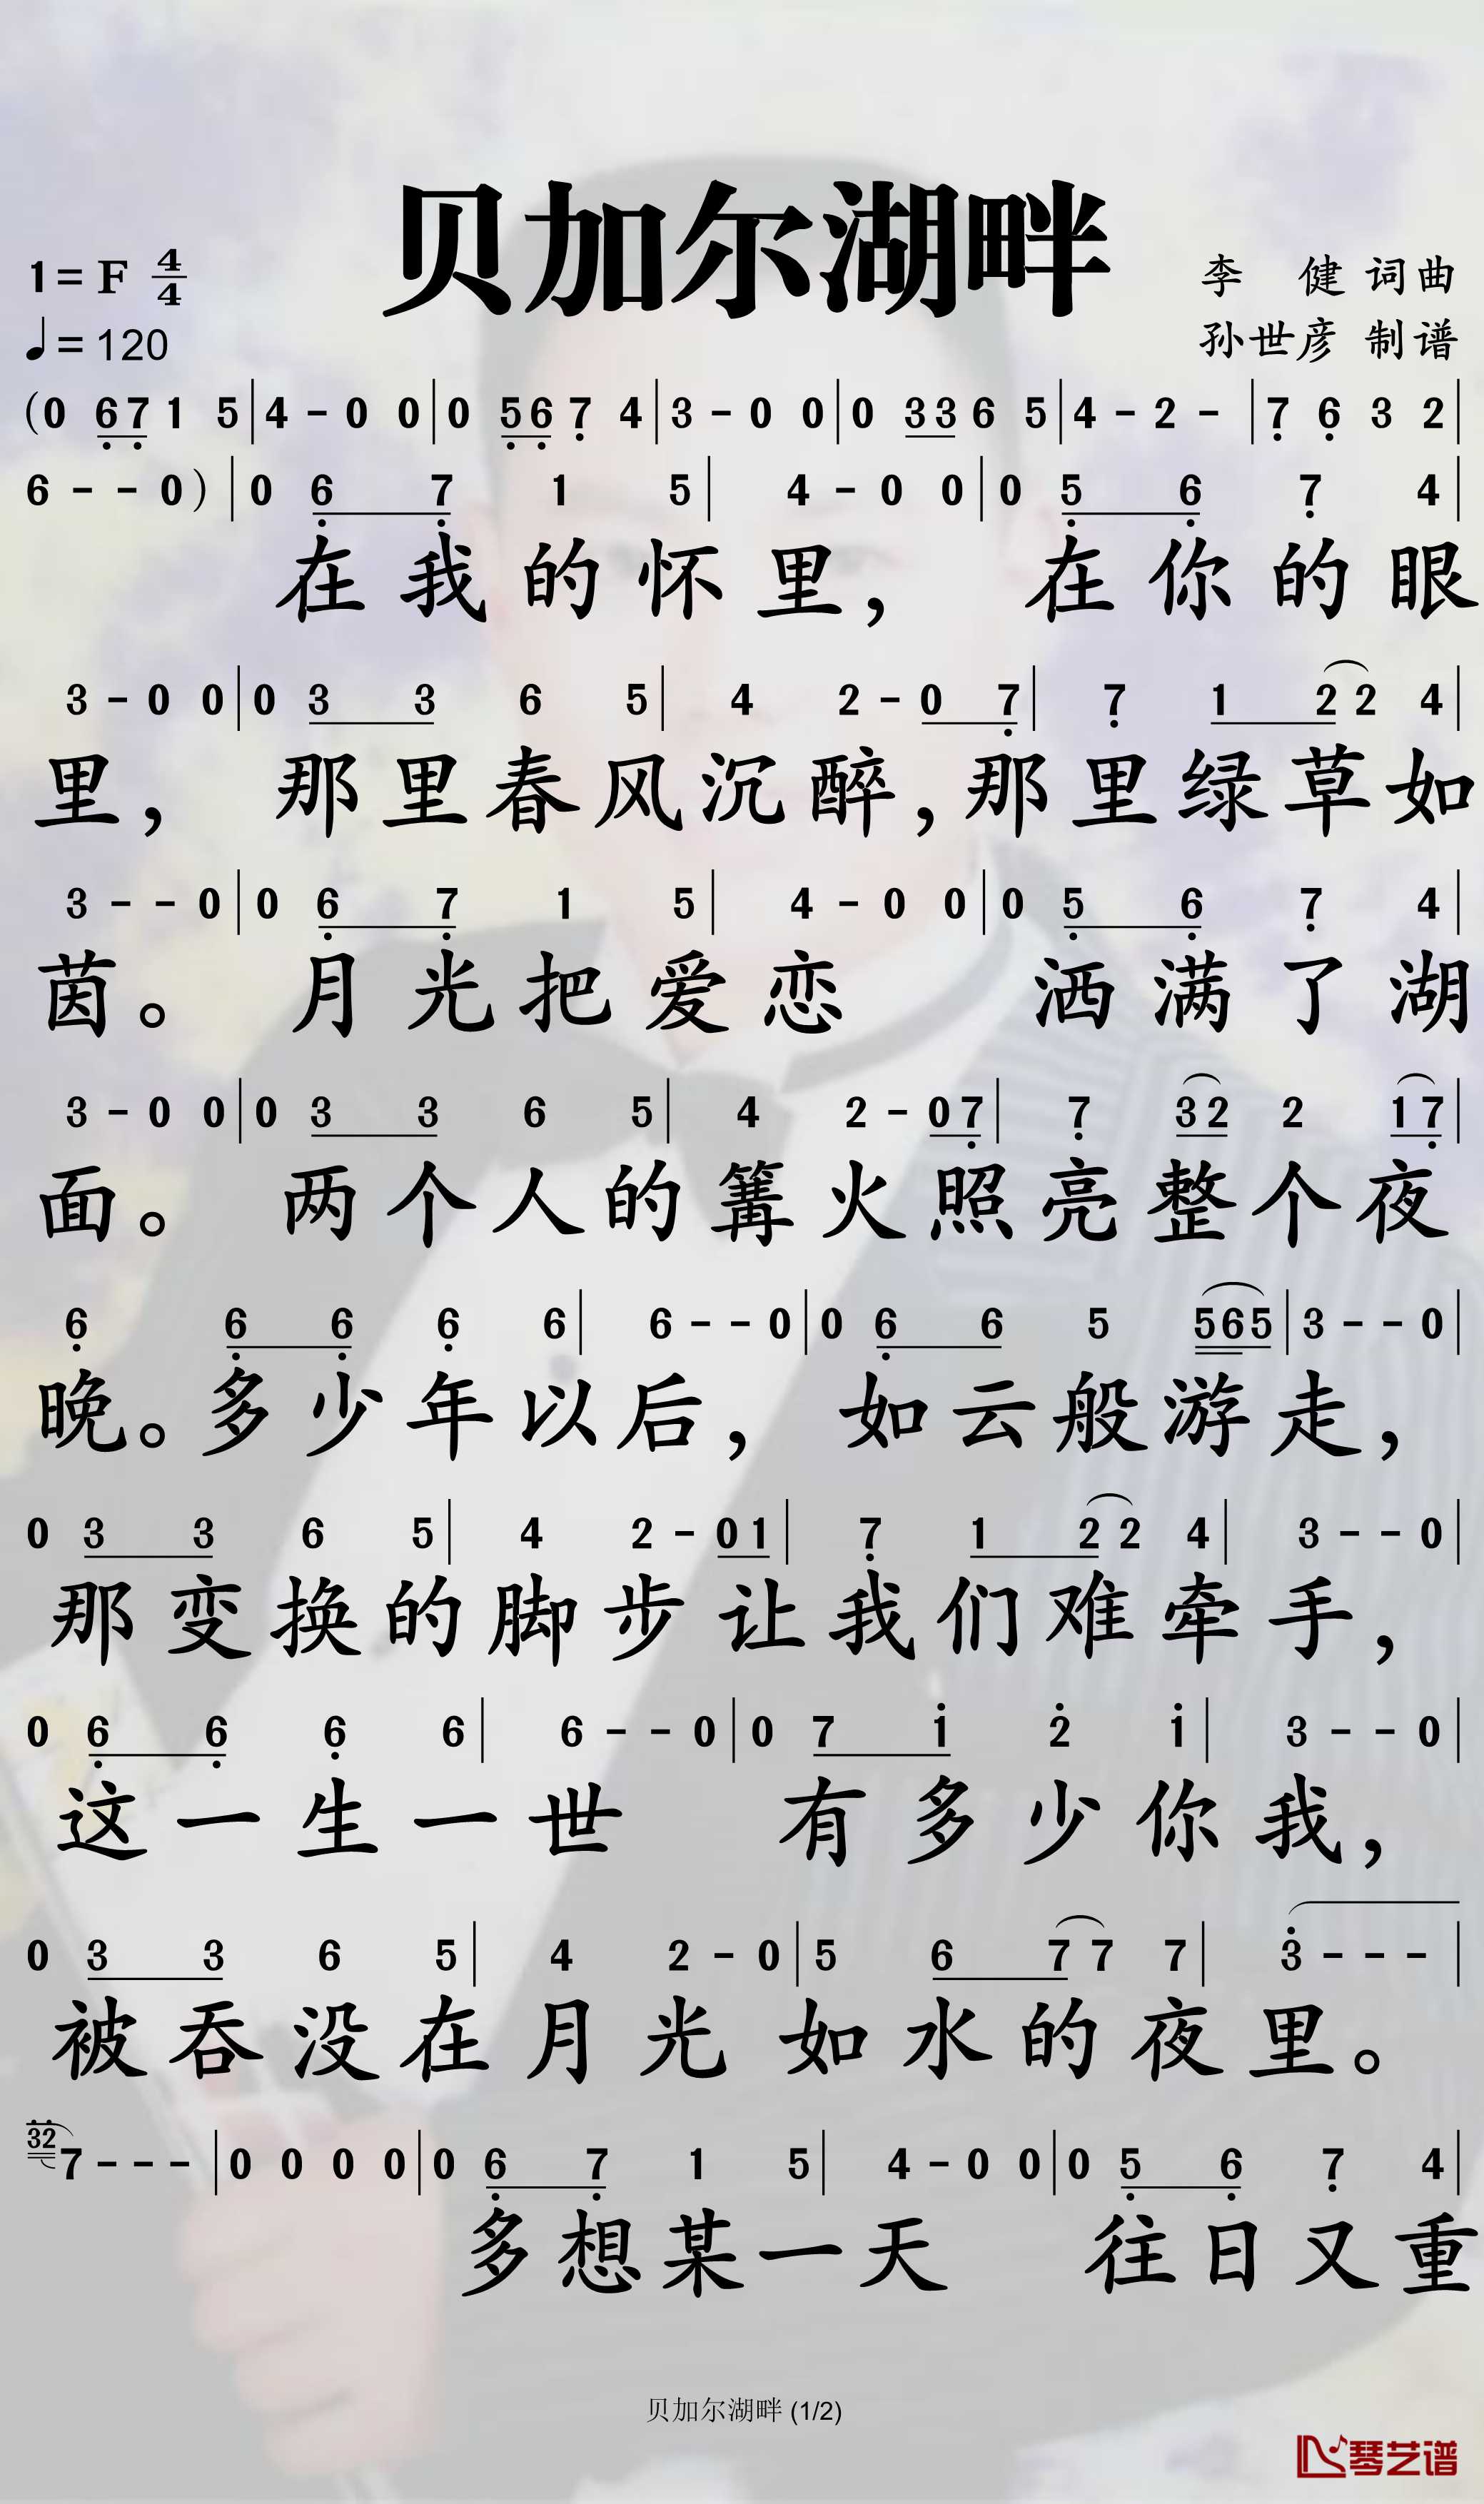 贝加尔湖畔
1= F 4/4
李 健 词曲
♩= 120
孙世彦 制谱
(0 6̣ 7̣ 1 5 | 4 - 0 0 | 0 5̣ 6̣ 7̣ 4 | 3 - 0 0 | 0 3 3 6 5 | 4 - 2 - | 7̣ 6̣ 3 2 |
6 - - 0 ) | 0 6̣ 7̣ 1 5 | 4 - 0 0 | 0 5̣ 6̣ 7̣ 4 |
在我的怀里， 在你的眼
3 - 0 0 | 0 3 3 6 5 | 4 2 - 0 7̣ | 7̣ 1 2 2 4 |
里， 那里春风沉醉，那里绿草如
3 - - 0 | 0 6̣ 7̣ 1 5 | 4 - 0 0 | 0 5̣ 6̣ 7̣ 4 |
茵。 月光把爱恋 洒满了湖
3 - 0 0 | 0 3 3 6 5 | 4 2 - 0 7̣ | 7̣ 3 2 2 1 7̣ |
面。 两个人的篝火照亮整个夜
6̣ 6̣ 6̣ 6̣ 6 | 6 - - 0 | 0 6̣ 6 5 5 6 5 | 3 - - 0 |
晚。多少年以后， 如云般游走，
0 3 3 6 5 | 4 2 - 0 1 | 7̣ 1 2 2 4 | 3 - - 0 |
那变换的脚步让我们难牵手，
0 6̣ 6̣ 6̣ 6 | 6 - - 0 | 0 7 1̇ 2̇ 1̇ | 3 - - 0 |
这一生一世 有多少你我，
0 3 3 6 5 | 4 2 - 0 | 5 6 7 7 7 | 3̇ - - - |
被吞没在月光如水的夜里。
3̇2̇ 7 - - - | 0 0 0 0 | 0 6̣ 7̣ 1 5 | 4 - 0 0 | 0 5̣ 6̣ 7̣ 4 |
多想某一天 往日又重
贝加尔湖畔 (1/2)
琴艺谱